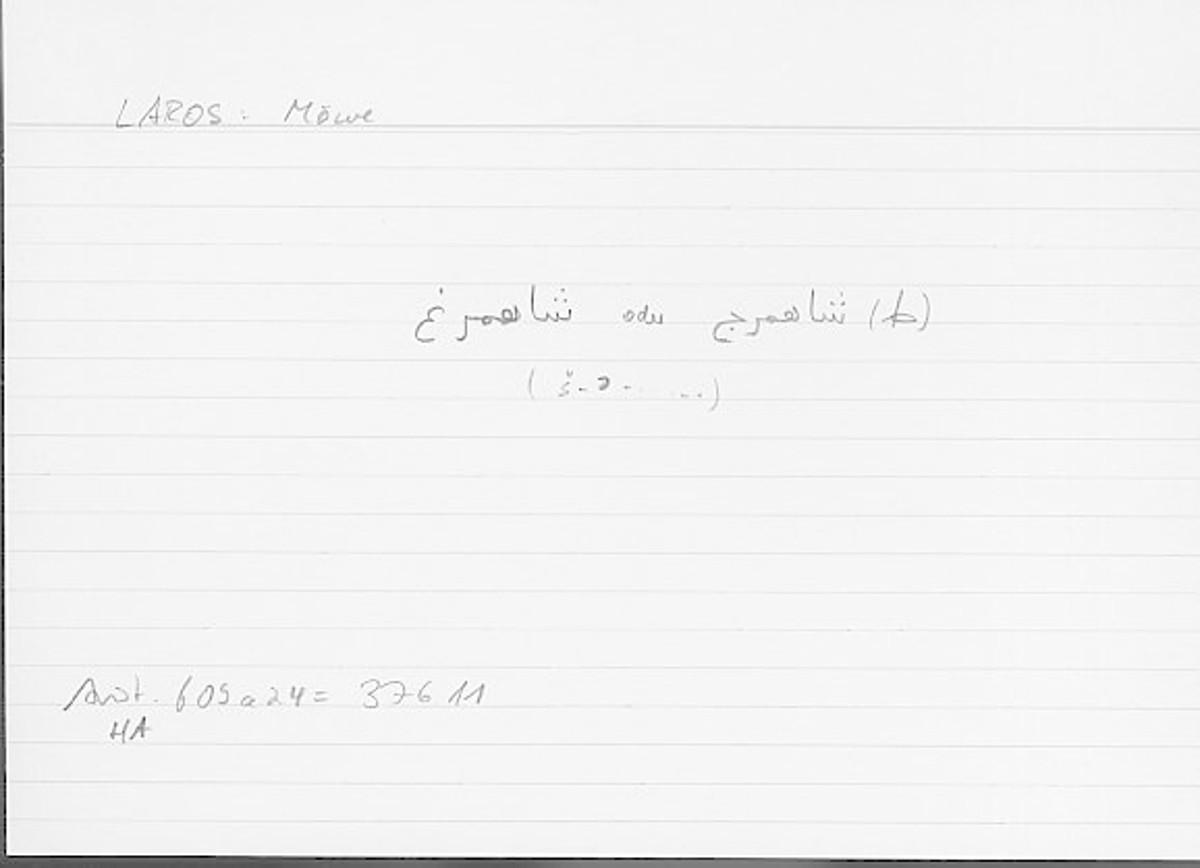 LAROS : Möwe
(ط) شاهمرج odu شاهمرغ
(š-
Arist. 609a24 = 376 11
HA